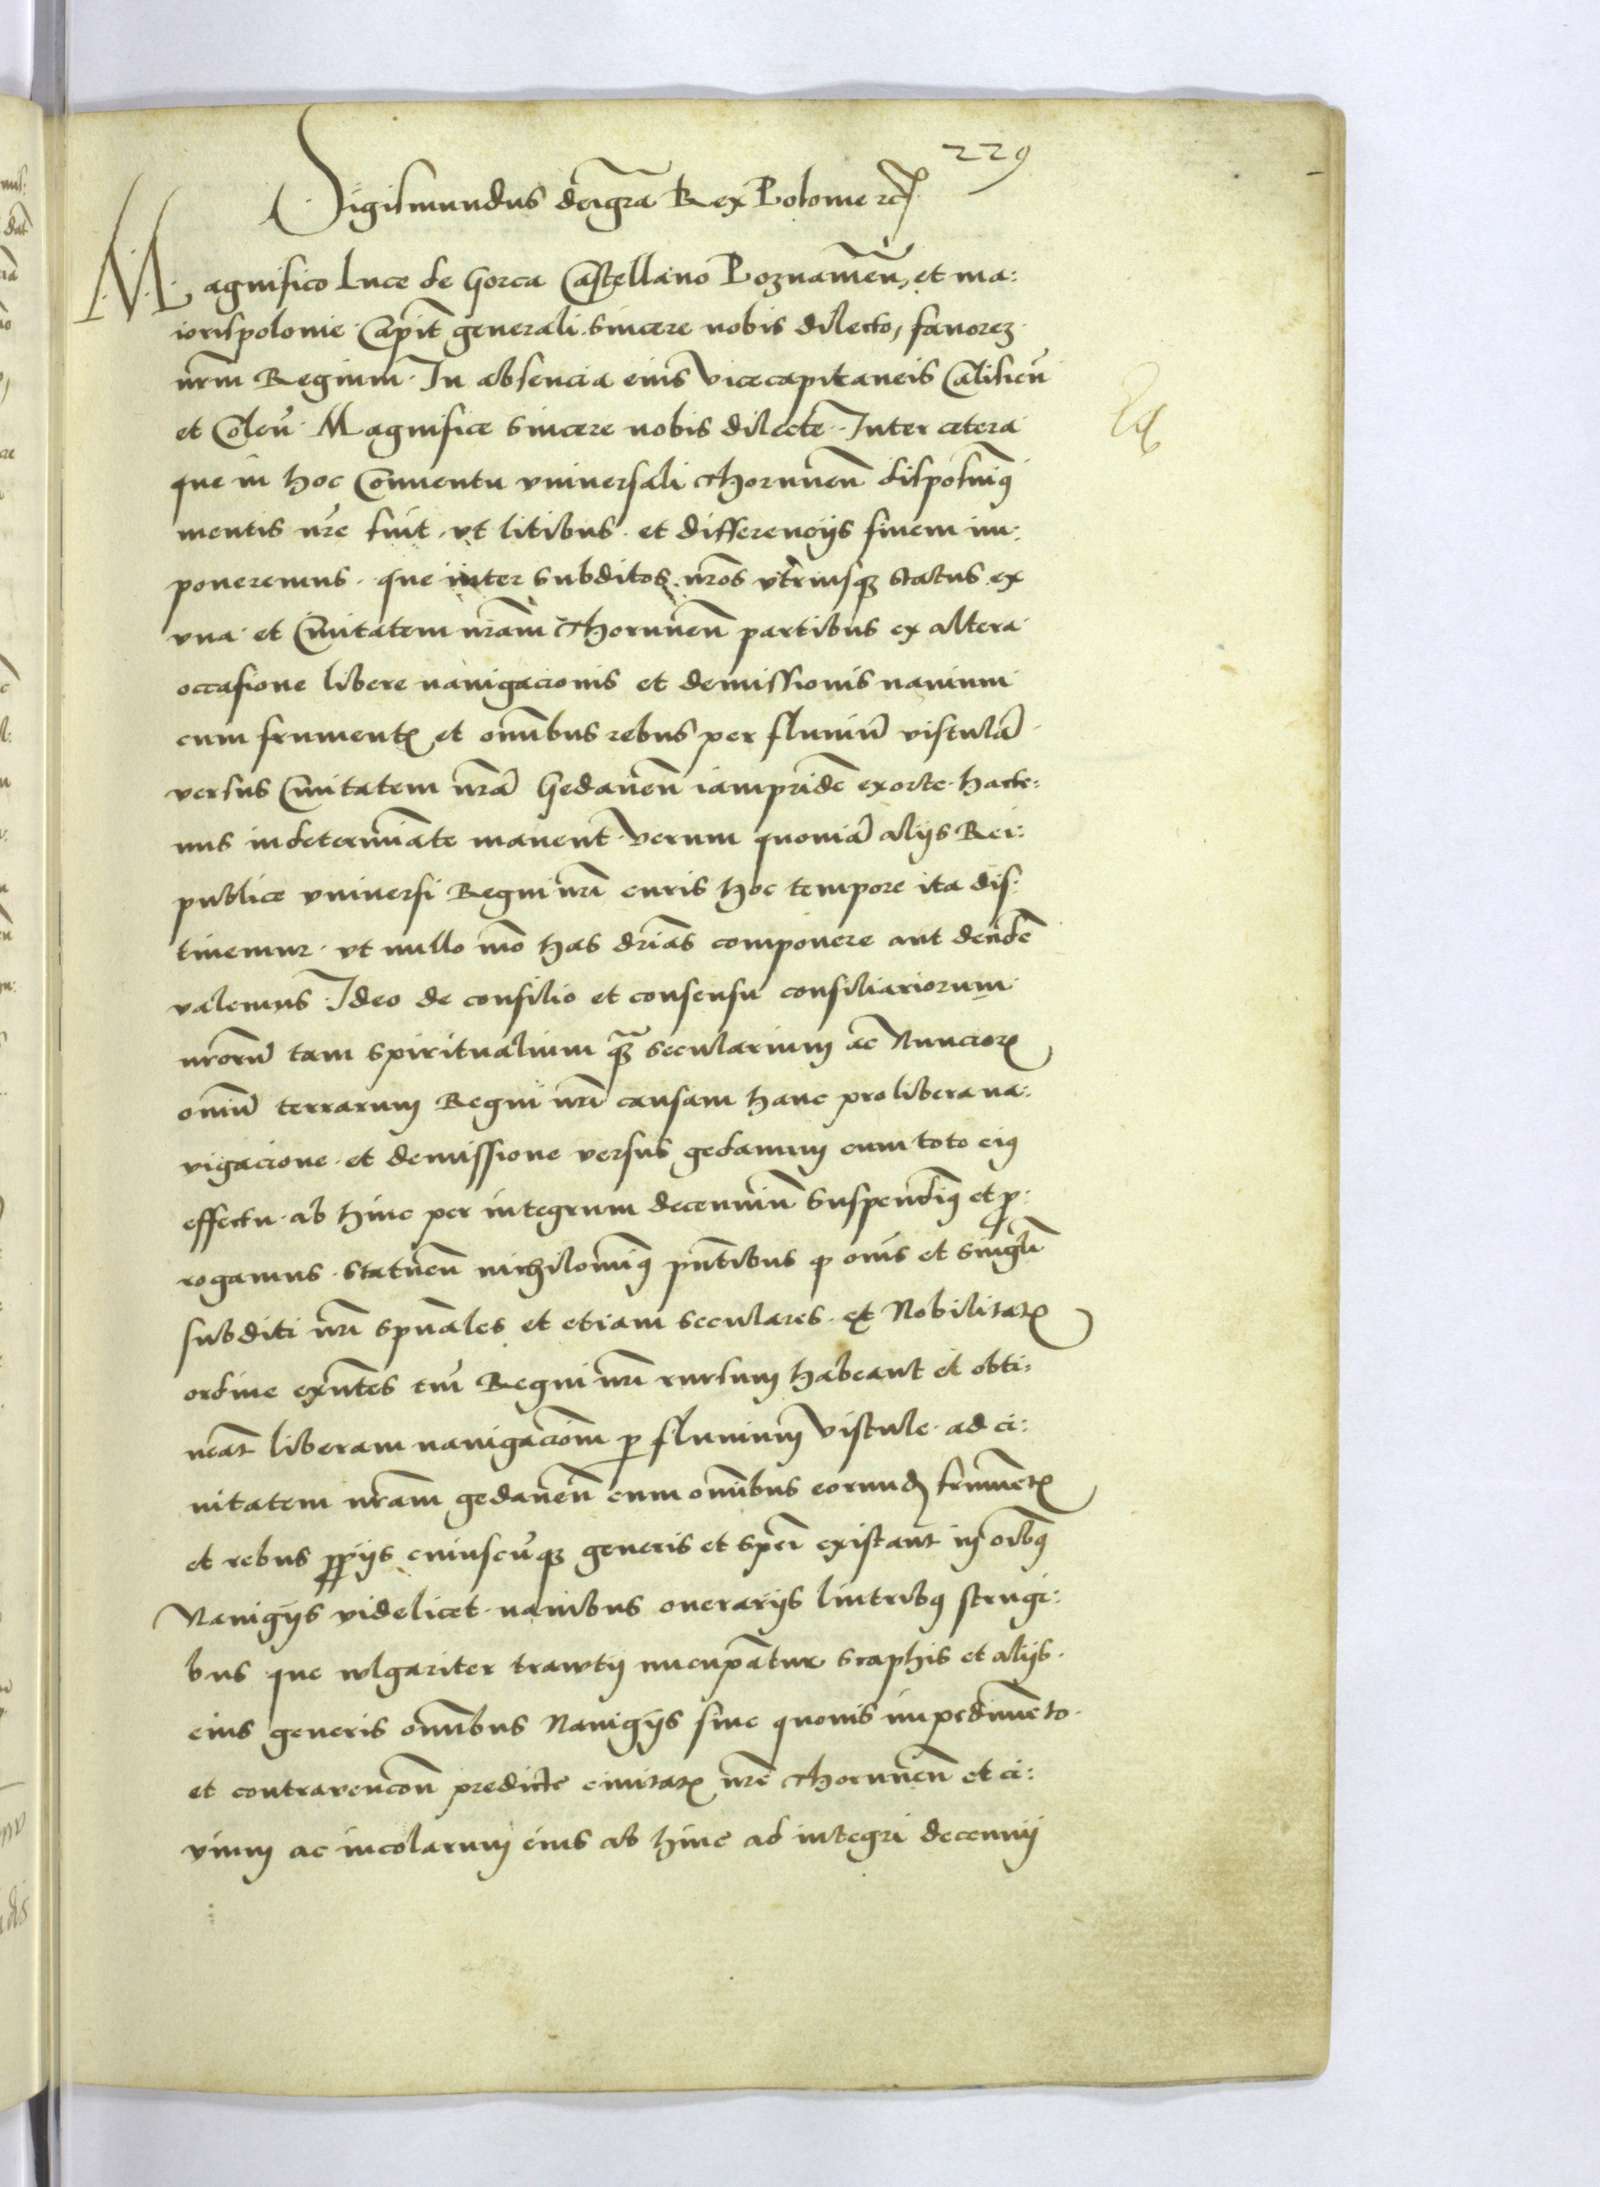 229
Sigismundus deigra Rex Polonie rc
Magnifico Luce de Gorca Castellano Poznamen, et ma:
iorispolonie Capit generali sincere nobis dilecto, favorez
nrm Regium. In absencia eius Vicecapitaneis Calisien
et Colen. Magnifice sincere nobis dilecte. Inter cetera
que in hoc Conventu universali Thorunen disposuimq
mentis nre fuit, ut litibus et differenciis finem im:
poneremus que inter subditos nros utriusq status ex
una et Civitatem nram Thorunen partibus ex altera
occasione libere navigacionis et demissionis navium
cum frumentis et omnibus rebus per fluviu vistula
versus Civitatem nra Gedanen iampride exorte hacte:
nus indeterminate manent. Verum quonia aliis Rei:
publice universi Regni nri curis hoc tempore ita dis:
tinemur ut nullo mo has drias componere aut deinde
valemus. Ideo de consilio et consensu consiliariorum
nroru tam spiritualium qua secularium ac Nuncior
omniu terrarum Regni nri causam hanc pro libera na:
vigacione et demissione versus gedanum cum toto eiq
effectu ab hinc per integrum decenniu suspendimq et pro:
rogamus statuen nichilominq pntibus q ones et singli
subditi nri spuales et etiam seculares ex Nobilitatis
ordine exntes Regni nri rursum habeant et obti:
neat liberam navigaciom p fluvium Vistule ad ci:
vitatem nram gedanen cum omnibus eorund frumetis
et rebus ppiis cuiuscuq generis et spei existant in oibq
Navigiis videlicet navibus onerariis lintribq strugi:
bus que vulgariter trawtij nucupatur scaphis et aliis
eius generis omnibus Navigiis sine quovis impedimeto
et contravencon predicte civitatis nre Thorunen et ci:
vium ac incolarum eius ab hinc ad integri decennii